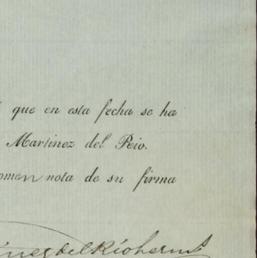 que en esta fecha se ha
Martinez del Rio.
omen nota de su firma
inez del Rio herm